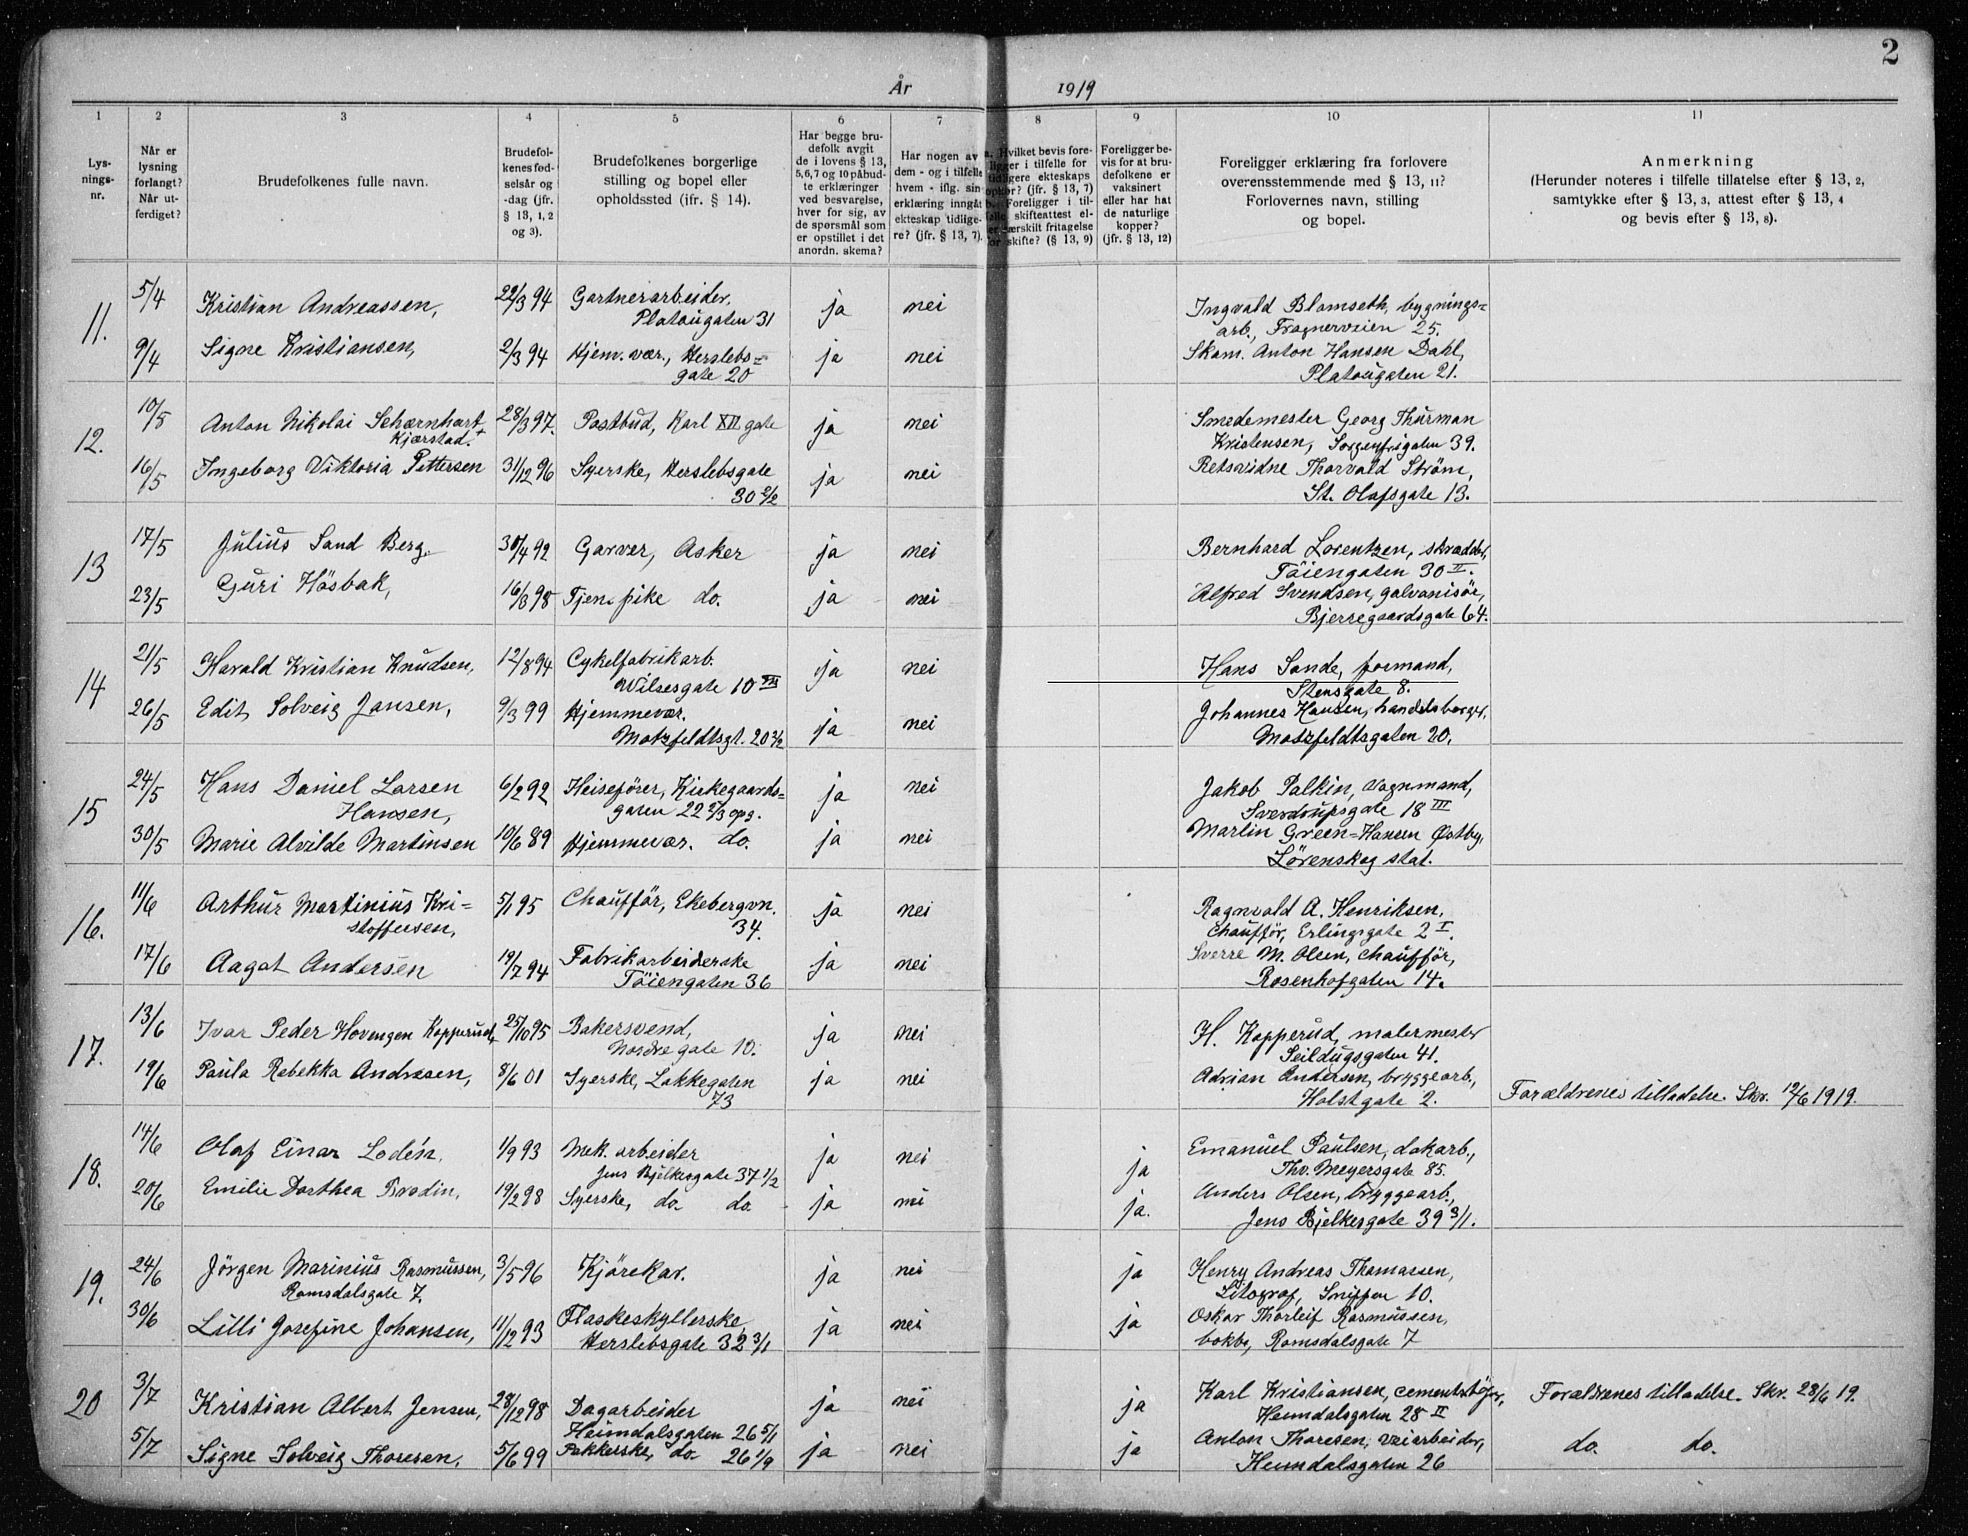 2
År 1919
1 2 3 4 5 6 7 8 9 10 11
Lys-
nings-
nr.
Når er
lysning
forlangt?
Når ut-
ferdiget?
Brudefolkenes fulle navn.
Brudefol-
kenes fød-
selsår og
-dag (jfr.
§ 13, 1, 2
og 3).
Brudefolkenes borgerlige
stilling og bopel eller
opholdssted (ifr. § 14).
Har begge bru-
defolk avgit
de i lovens § 13,
5,6,7 og 10 påbud-
te erklæringer
ved besvarelse,
hver for sig, av
de spørsmål som
er opstillet i det
anordn. skema?
Har nogen av
dem - og i tilfelle
hvem - iflg. sin
erklæring inngåt
ekteskap tidlige-
re? (jfr. § 13, 7).
a. Hvilket bevis fore-
ligger i tilfelle for
tidligere ekteskaps
ophør? (jfr. § 13, 7)
b. Foreligger i til-
felle skifteattest el-
ler særskilt fritagelse
for skifte? (§ 13, 9)
Foreligger be-
vis for at bru-
defolkene er
vaksinert
eller har hat
de naturlige
kopper?
(jfr. § 13, 12)
Foreligger erklæring fra forlovere
overensstemmende med § 13, 11?
Forlovernes navn, stilling
og bopel.
Anmerkning
(Herunder noteres i tilfelle tillatelse efter § 13, 2,
samtykke efter § 13, 3, attest efter § 13, 4
og bevis efter § 13, 8).
11. 5/4 Kristian Andreassen, 29/3 94 Gartnerarbeider, ja nei Ingvald Blomseth, bygnings=
Platougaten 31 arb., Frognerveien 25.
9/4 Signe Kristiansen, 2/3 94 Hjem. vær., Herslebs= ja nei Skom. Anton Hansen Dahl,
gate 20 Platougaten 21.
12. 10/5 Anton Nikolai Scharnhart 28/3 97. Postbud, Karl XII gate ja nei Smedemester Georg Thurman
Kjærstad. Kristensen, Sorgenfrigaten 39.
16/5 Ingeborg Viktoria Pettersen 31/12 96 Syerske, Herslebsgate ja nei Retsvidne Thorvald Strøm,
30 2/2 St. Olafsgate 13.
13 17/5 Julius Sand Berg. 30/4 92 Garver, Asker ja nei Bernhard Lorentzen, skrædder,
Tøiengaten 30 II.
23/5 Guri Hösbak, 16/3 98 Tjen. pike do. ja nei Alfred Svendsen, galvanisör,
Bjerregaardsgate 64.
14 21/5 Harald Kristian Knudsen, 12/8 94 Cykelfabrikarb. ja nei Hans Sande, formand,
Vilsesgate 10 III Stensgate 8.
26/5 Edit Solveig Jansen, 9/3 99 Hjemmevær. ja nei Johannes Hansen, handelsborger,
Motzfeldtsgt. 20 3/2 Motzfeldtsgaten 20.
15 24/5 Hans Daniel Larsen 6/2 92 Heisefører, Kirkegaards= ja nei Jakob Palkin, Vognmand,
Hansen, gaten 22 2/3 opg. Sverdrupsgate 18 III
30/5 Marie Alvilde Martinsen 10/6 89 Hjemmevær. do. ja nei Martin Green-Hansen Østby,
Lørenskog stat.
16. 11/6 Arthur Martinius Kri= 5/1 95 Chauffør, Ekebergvn. ja nei Ragnvald A. Henriksen,
stoffersen, 34. Chauffør, Erlingsgate 2 I.
17/6 Aagot Andersen 19/7 94 Fabrikarbeiderske ja nei Sverre M. Olsen, chauffør,
Töiengaten 36 Rosenhofgaten 14.
17. 13/6 Ivar Peder Hovengen Kopperud, 25/10 95 Bakersvend, ja nei H. Kopperud, malermester
Nordre gate 10. Seildugsgaten 41.
19/6 Paula Rebekka Andresen, 8/6 01 Syerske, Lakkegaten ja nei Adrian Andersen, bryggearb.,
73 Holstgate 2. Forældrenes tilladelse. Skr. 12/6 1919.
18. 14/6 Olaf Einar Lodén. 1/9 93 Mek. arbeider ja nei ja Emanuel Paulsen, dokarb.,
Jens Bjelkesgate 37 1/2 Thv. Meyersgate 85.
20/6 Emilie Dorthea Brodin, 19/2 98 Syerske, do. do. ja nei ja. Anders Olsen, bryggearb.,
Jens Bjelkesgate 39 3/1.
19. 24/6 Jörgen Marinius Rasmussen, 3/5 96 Kjörekar. ja nei ja Henry Andreas Thomassen,
Romsdalsgate 7. Litograf, Snippen 10.
30/6 Lilli Josefine Johansen, 11/12 93 Flaskeskyllerske, ja nei ja Oskar Thorleif Rasmussen,
Herslebsgate 32 3/1 bokb., Romsdalsgate 7
20 3/7 Kristian Albert Jensen, 28/12 98 Dagarbeider ja nei ja Karl Kristiansen, cementstöper, Forældrenes tilladelse. Skr. 28/6 19.
Heimdalsgaten 26 5/1 Heimdalsgaten 28 II
5/7 Signe Solveig Thoresen, 5/6 99 Pakkerske, do. 26 1/9 ja nei ja Anton Thoresen, veiarbeider, do. do.
Heimdalsgaten 26